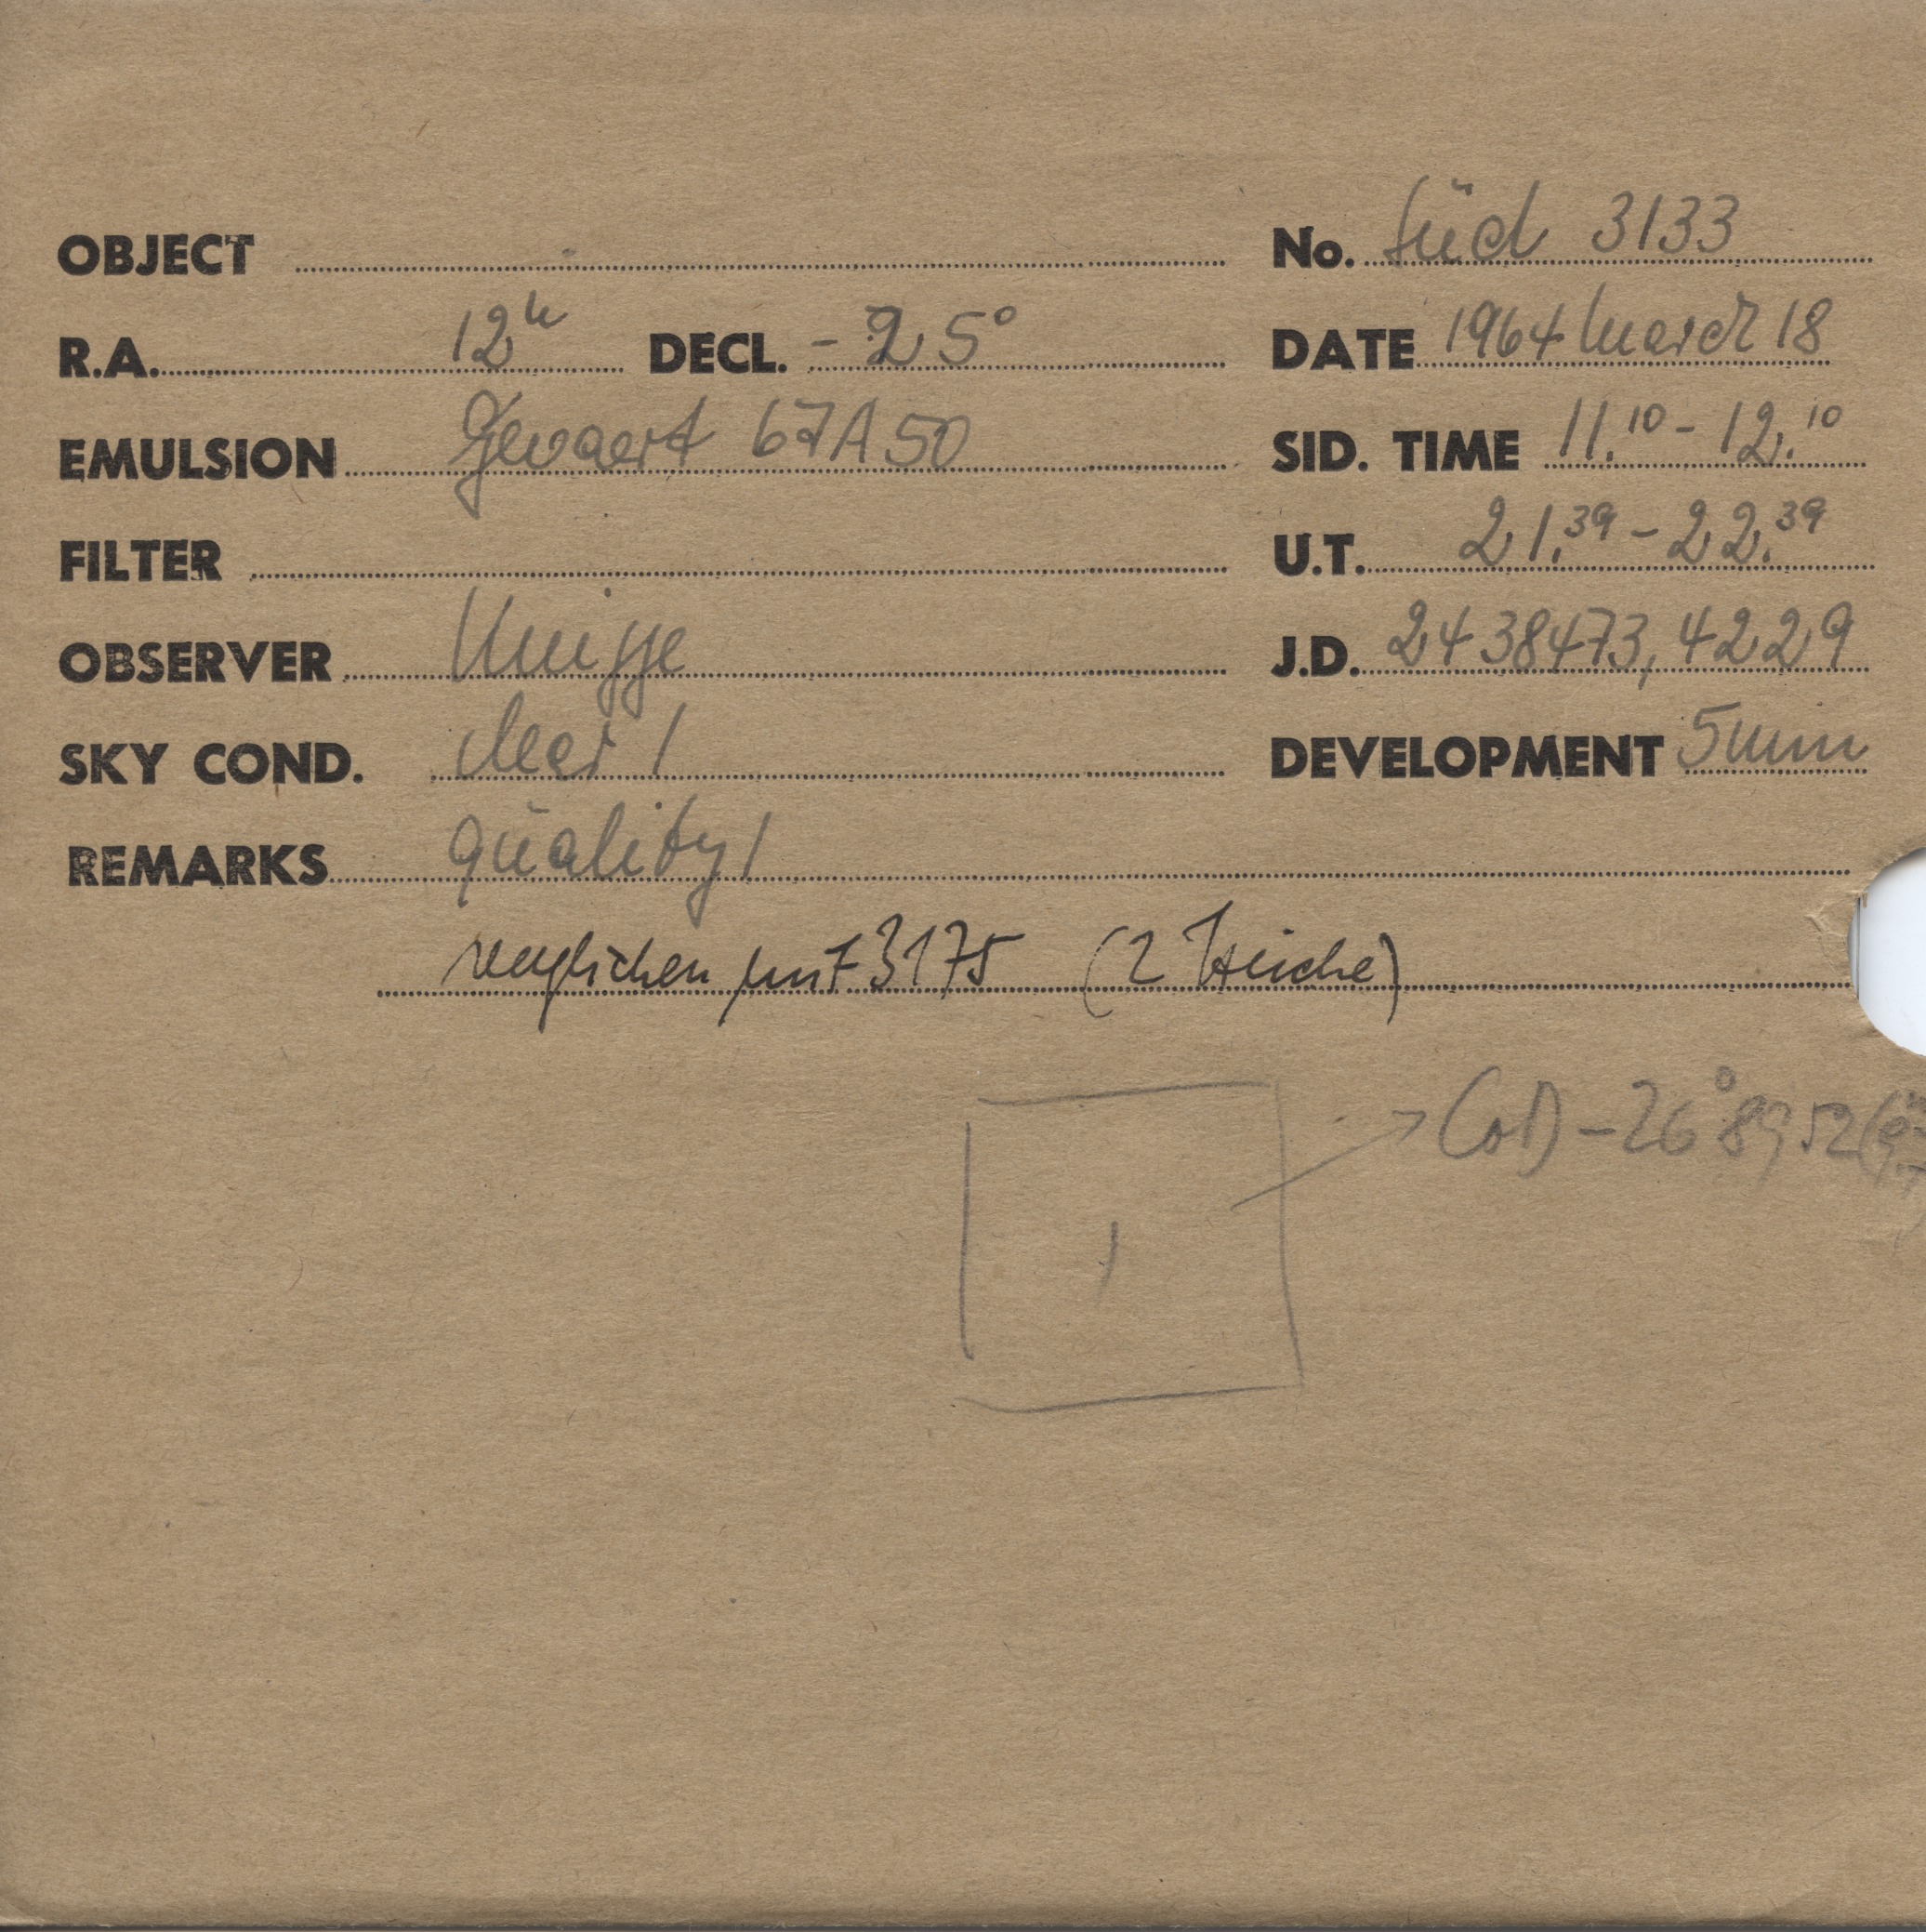 OBJECT No. Süd 3133
R.A. 12h DECL. -25°
DATE 1964 March 18
EMULSION Gevaert 67A50
SID. TIME 11.10 - 12.10
FILTER
U.T. 21.39 - 22.39
OBSERVER
J.D. 2438473,4229
SKY COND. clear 1
DEVELOPMENT 5 min
REMARKS quality 1
verglichen mit 3175 (2 Striche)
CoD -26° 8952